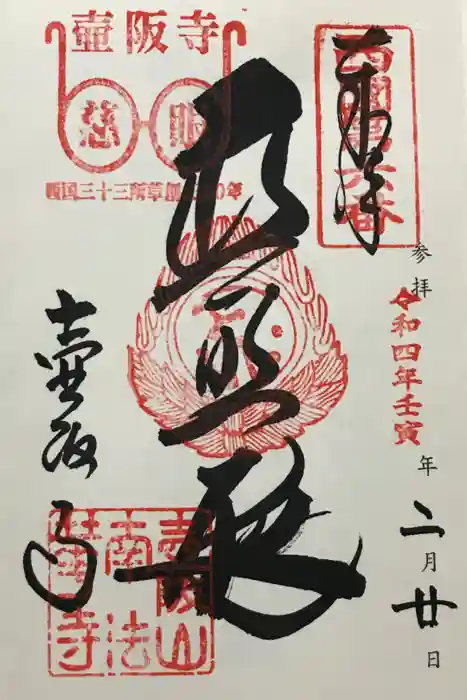 西國第六番
奉拝
壺阪寺
慈眼
西国三十三所草創1300年
普照殿
壺阪寺
壺阪山
南法
華寺
参拝
令和四年壬寅年二月廿日